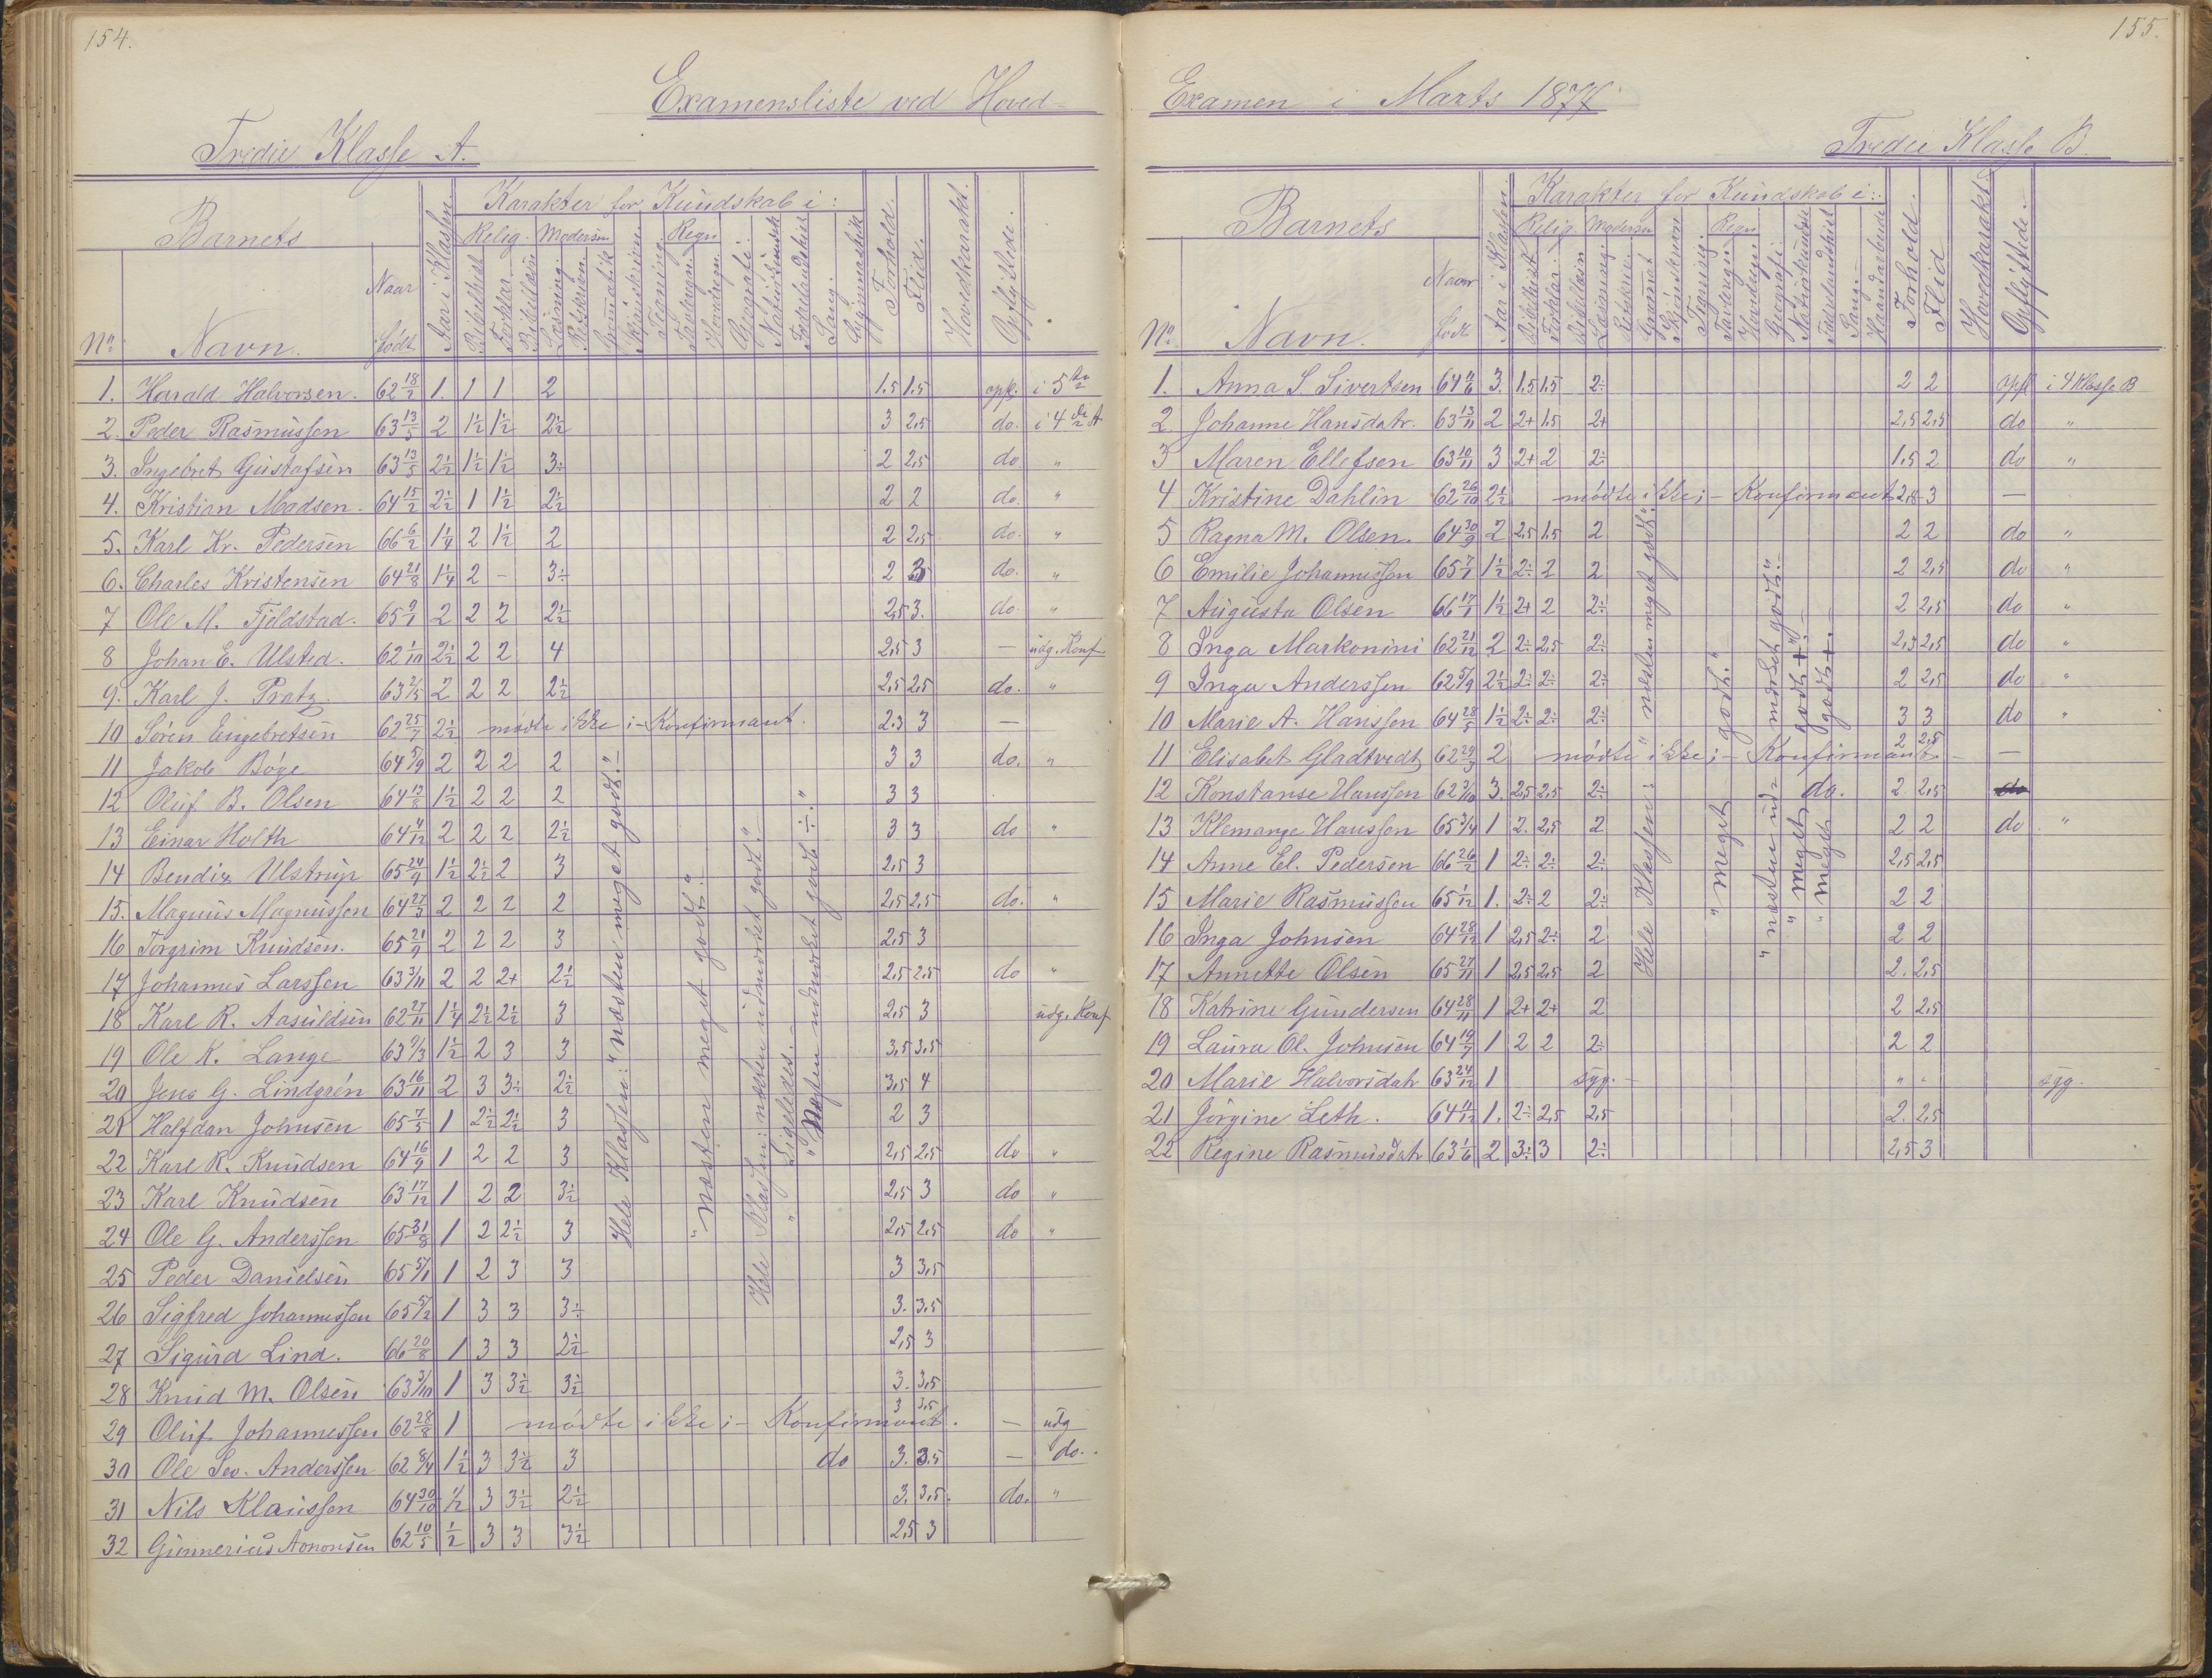 154.
Examensliste ved Hoved-
Tredie Klasse A.
Barnets
Karakter for Kundskab i:
Relig. Modersm Regn
No. Navn. Naar født Aar i Klassen. Bibelhist. Forklar. Bibellæsn Læsning. Retskrivn. Gramatik Skjønskrivn. Tegning. Tavleregn. Hovedregn. Geografi. Naturkundsk Fædrelandshist Sang. Gymnastik Forhold. Flid. Hovedkarakt. Opflyttede.
1. Harald Halvorsen. 62 18/2 1. 1 1 2 1.5 1.5 opfl. i 5te
2. Peder Rasmussen 63 13/5 2 1½ 1½ 2½ 3 2,5 do. i 4de A
3. Ingebret Gustafsen 63 13/5 2½ 1½ 1½ 3÷ 2 2,5 do "
4. Kristian Madsen. 64 15/2 2½ 1 1½ 2½ 2 2 do. "
5. Karl Kr. Pedersen 66 6/2 1¼ 2 1½ 2 2 2,5 do. "
6. Charles Kristensen 64 21/8 1¼ 2 – 3÷ 2 3 do. "
7 Ole M. Fjeldstad. 65 9/1 2 2 2 2½ 2,5 3. do. "
8 Johan E. Ulsted. 62 1/10 2½ 2 2 4 2,5 3 — udg. Konf.
9. Karl J. Pratz 63 2/5 2 2 2 2½ 2,5 2,5 do. "
10 Søren Engebretsen 62 25/7 2½ mødte ikke i – Konfirmant. 2.3 3 —
11 Jakob Bøge 64 5/9 2 2 2 2 3 3 do. "
12 Oluf B. Olsen 64 13/8 1½ 2 2 2 3 3
13 Einar Holth 64 4/12 2 2 2 2½ 3 3 do "
14 Bendix Ulstrup 65 24/9 1½ 2½ 2 3 2,5 3
15. Magnus Magnussen 64 27/3 2 2 2 2 2,5 2,5 do. "
16 Torgrim Knudsen. 65 21/9 2 2 2 3 2,5 3
17 Johannes Larssen 63 3/11 2 2 2+ 2½ 2,5 2,5 do "
18 Karl R. Aasuldsen 62 27/11 1¼ 2½ 2½ 3 2,5 3 udg. Konf
19 Ole K. Lange 63 9/3 1½ 2 3 3 3,5 3,5
20 Jens G. Lindgrén 63 16/11 2 3 3÷ 2½ 3,5 4
21 Halfdan Johnsen 65 7/5 1 2½ 2½ 3 2 3
22 Karl R. Knudsen 64 16/9 1 2 2 3 2,5 2,5 do "
23 Karl Knudsen 63 17/12 1 2 2 3½ 2,5 3 do "
24 Ole G. Anderssen 65 31/8 1 2 2½ 3 2,5 2,5 do "
25 Peder Danielsen 65 5/1 1 2 3 3 3 3,5
26 Sigfred Johannessen 65 5/2 1 3 3 3÷ 3. 3.5
27 Sigurd Lind. 66 20/8 1 3 3 2½ 2,5 3
28 Knud M. Olsen 63 3/10 1 3 3½ 3½ 3. 3,5
29 Oluf Johannessen 62 28/8 1 mødte ikke i – Konfirmant. 3 3,5 — udg
30 Ole Sev. Anderssen 62 8/4 1½ 3 3½ 3 do 3. 3.5 — do.
31 Nils Klaussen 64 30/10 ½ 3 3½ 2½ 3. 3,5. do. "
32 Gunnerius Aanonsen 62 10/5 ½ 3 3 3½ 2,5 3
Hele Klassen: "næsten meget godt."–
"næsten meget godt."
Hele Klassen: næsten udmærket godt."–
" Ligeledes.–
" Næsten udmærket godt ÷."
155.
Examen i Marts 1877
Tredie Klasse B.
Barnets
Karakter for Kundskab i:
Relig. Modersm Regn
No. Navn. Naar født Aar i Klassen Bibelhist Forklar. Bibellæsn Læsning. Retskr. Gramat Skjønskrivn Tegning. Tavleregn Hovedregn. Geografi. Naturkundsk Fædrelandshist Sang. Haandarbeide Forhold. Flid Hovedkarakt. Opflyttede.
1. Anna S. Sivertsen 64 4/6 3. 1.5 1.5 2÷ 2 2 opfl i 4 Klasse B
2. Johanne Hansdatr. 63 13/11 2 2+ 1.5 2+ 2,5 2,5 do "
3 Maren Ellefsen 63 10/11 3 2+ 2 2÷ 1.5 2 do "
4 Kristine Dahlin 62 26/10 2½ mødte ikke i – Konfirmant 2,8 3 —
5 Ragna M. Olsen. 64 30/9 2 2.5 1.5 2 2 2 do "
6 Emilie Johannessen 65 7/1 1½ 2÷ 2 2 2 2,5 do "
7 Augusta Olsen 66 17/1 1½ 2+ 2 2÷ 2 2,5 do "
8 Inga Markonini 62 21/12 2 2÷ 2,5 2÷ 2,3 2,5 do "
9 Inga Anderssen 62 5/9 2½ 2÷ 2÷ 2÷ 2 2,5 do "
10 Marie A. Hanssen 64 28/5 1½ 2÷ 2÷ 2÷ 3 3 do "
11 Elisabet Gladtvedt 62 29/3 2 mødte ikke i – Konfirmant. 2 2,5 —
12 Konstanse Hanssen 62 3/10 3. 2,5 2,5 2÷ do. 2. 2,5 do
13 Klemange Hanssen 65 3/4 1 2. 2,5 2 2 2 do. "
14 Anne El. Pedersen 66 26/2 1 2÷ 2÷ 2÷ 2,5 2,5
15 Marie Rasmussen 65 1/12 1. 2÷ 2 2÷ 2 2
16 Inga Johnsen 64 28/12 1 2,5 2÷ 2 2 2
17 Annette Olsen 65 27/11 1 2,5 2,5 2 2. 2,5
18 Katrine Gundersen 64 28/11 1 2+ 2+ 2 2 2,5
19 Laura Ol. Johnsen 64 19/7 1 2 2 2÷ 2 2
20 Marie Halvorsdatr 63 24/12 1 syg. – " " syg.
21 Jörgine Leth. 64 4/12 1. 2÷ 2,5 2,5 2. 2,5
22 Regine Rasmusdatr 63 1/6 2 3÷ 3 2÷ 2,5 3
Hele Klassen: "næsten meget godt."
"meget godt."
"næsten udmærket godt."–
"meget godt +"–
"meget godt +.–